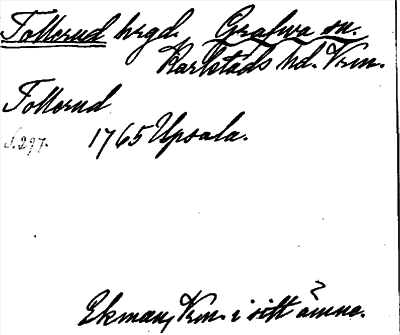 Tollerud hrgd. Grafwa sn.
Karlstads hd. Vrm.
Tollerud
S.297. 1765 Upsala.
?
Ekman, Vrm. i sitt ämne.